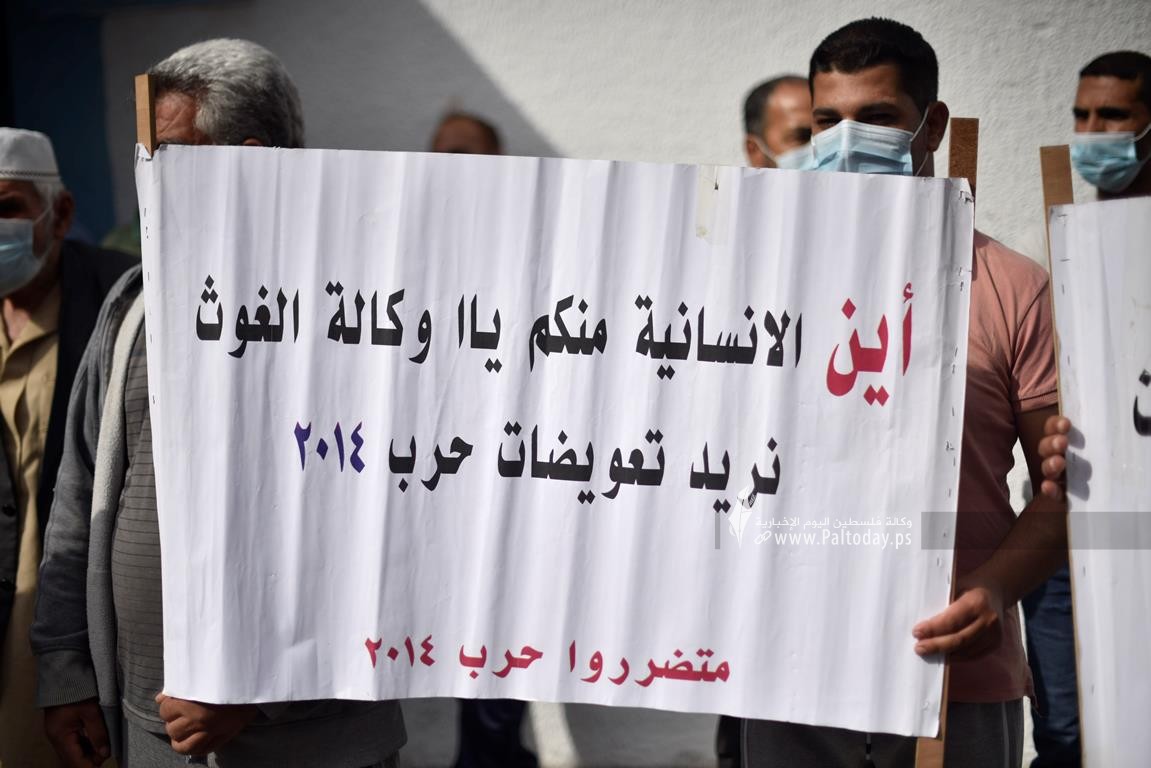 أين الانسانية منكم ياا وكالة الغوث
نريد تعويضات حرب ٢٠١٤
متضرروا حرب ٢٠١٤
وكالة فلسطين اليوم الإخبارية
www.Paltoday.ps